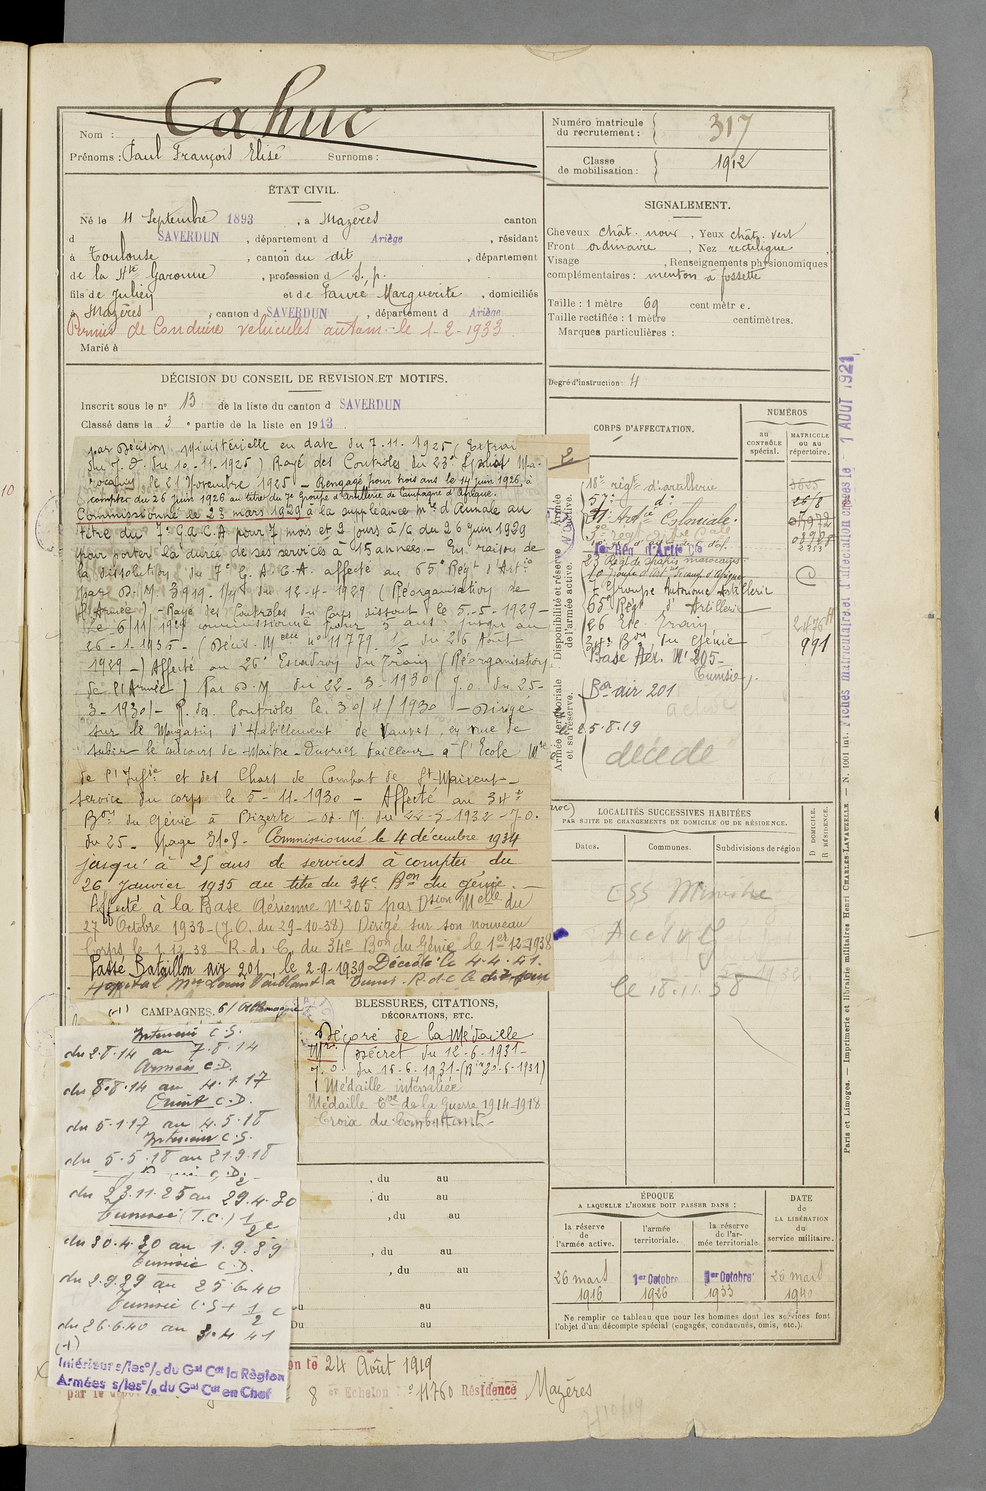 Cahuc
Nom :
Prénoms : Paul François Elisé Surnoms :
Numéro matricule du recrutement : 317
Classe de mobilisation : 1912
ÉTAT CIVIL.
Né le 11 Septembre 1893, à Mazères canton
d SAVERDUN, département d Ariège, résidant
à Toulouse, canton du dit, département
de la Hte Garonne, profession d S. p.
fils de Julien et de Faure Marguerite, domiciliés
à Mazères, canton d SAVERDUN, département d Ariège
Permis de Conduire vehicules autom. le 1-2-1933
Marié à
SIGNALEMENT.
Cheveux chât. noir, Yeux chât. vert
Front ordinaire, Nez rectiligne
Visage , Renseignements physionomiques
complémentaires : menton à fossette
Taille : 1 mètre 69 centimètre.
Taille rectifiée : 1 mètre centimètres.
Marques particulières :
Degré d'instruction : 4
DÉCISION DU CONSEIL DE REVISION ET MOTIFS.
Inscrit sous le no 13 de la liste du canton d SAVERDUN
Classé dans la 3e partie de la liste en 1913
par Décision Ministérielle en date du 7.11.1925 (Extrait
du J.O. du 10.11.1925) Rayé des Controles du 23e
le 21 Novembre 1925) – Rengagé pour trois ans le 14 juin 1926, à
compter du 26 juin 1926 au titre du 7e Groupe d'artillerie de Campagne d'Afrique.
Commissionné le 23 mars 1929 à la suppléance
titre du 7e G.A.C.A pour 7 mois et 3 jours à/c du 26 juin 1929
pour porter la durée de ses services à 15 années. – En raison de
la dissolution du 7e G.A.C.A. affecté au 65e Régt d'Artie
par D.M. 3919. 1/4 du 12-4-1929 (Réorganisation de
l'Armée) – Rayé des Controles du Corps dissout le 5-5-1929 –
Le 6/11/1929 commissionné pour 5 ans jusqu'au
26-1-1935 – (Décis. Melle no 11779 du 26 Août
1929 –) Affecté au 26e Escadron du Train (Réorganisation
de l'Armée) Par D.M. du 22-3-1930 (J.O. du 25-
3-1930) – R. des Controles le 30/4/1930 – Dirigé
sur le Magasin d'Habillement de Vanves, en vue de
subir le concours de Maître-Ouvrier tailleur à l'Ecole Mre
de l'Infie et des Chars de Combat de St-Maixent –
service du corps le 5-11-1930 – Affecté au 34e
Bon du Génie à Bizerte – D.M. du 22-5-1932 – J.O.
du 25 – page 3108 – Commissionné le 4 décembre 1934
jusqu'à 25 ans de services à compter du
26 Janvier 1935 au titre du 34e Bon du génie. –
Affecté à la Base Aérienne No 205 par Dtion Melle du
27 Octobre 1938 – (J.O. du 29-10-38) Dirigé sur son nouveau
Corps le 1.12.38 R. d. C. du 34e Bon du Génie le 1er-12-1938
Passé Bataillon air 201, le 2-9-1939 Décédé le 4.4.41.
Hopital Mre Louis Vaillant à Tunis. R. d. c. le dit jour
CORPS D'AFFECTATION.
NUMÉROS
AU CONTRÔLE spécial.
MATRICULE ou au répertoire.
Armée active.
Disponibilité et réserve de l'armée active.
Armée territoriale et sa réserve.
18e régt d'artillerie
57e do
Artie Coloniale.
1er Rég d'Artie
23 Régt de Spahis marocains
7e Groupe Autonome Artillerie
65e Régt d'Artillerie
26 Esc Train 2476
34e Bon du Génie 991
Base Aér. No 205 –
Tunisie.
Bon air 201
25-8-19
décédé
Fiches matriculaire et l'affectation créées le 1 AOUT 1921
LOCALITÉS SUCCESSIVES HABITÉES
PAR SUITE DE CHANGEMENTS DE DOMICILE OU DE RÉSIDENCE.
Dates.
Communes.
Subdivisions de région
D DOMICILE.
R RÉSIDENCE.
le 18.11.38
Paris et Limoges. — Imprimerie et librairie militaires Henri CHARLES-LAVAUZELLE — N. 1001 int.
CAMPAGNES. c/ Allemagne
Intérieur C.S.
du 2.8.14 au 7.8.14
Armées C.D.
du 8.8.14 au 4.1.17
Orient C.D.
du 5.1.17 au 4.5.18
Intérieur C.S.
du 5.5.18 au 21.9.18
du 23.11.25 au 29.4.30
Tunisie (T.C.) 1/2 c
du 30.4.30 au 1.9.39
Tunisie C.D.
du 2.9.39 au 25.6.40
Tunisie C.S + 1/2 c
du 26.6.40 au 3.4.41
(1)
Intérieur s/les o/. du Gal Cdt la Région
Armées s/les o/. du Gal Cdt en Chef
BLESSURES, CITATIONS,
DÉCORATIONS, ETC.
Décoré de la Médaille
Mre (Décret du 12-6-1931 –
J.O. du 16-6-1931
Médaille interalliée
Médaille Cve de la Guerre 1914-1918
Croix du Combattant –
, du au
, du au
, du au
, du au
, du au
du au
Du au
ÉPOQUE
A LAQUELLE L'HOMME DOIT PASSER DANS :
la réserve de l'armée active.
l'armée territoriale.
la réserve de l'armée territoriale.
DATE DE LA LIBÉRATION du service militaire.
26 mars 1916
1er Octobre 1926
1er Octobre 1933
26 mars 1940
Ne remplir ce tableau que pour les hommes dont les services font
l'objet d'un décompte spécial (engagés, condamnés, omis, etc.).
en le 24 Août 1919
8 er Echelon No 11760 Résidence Mazères